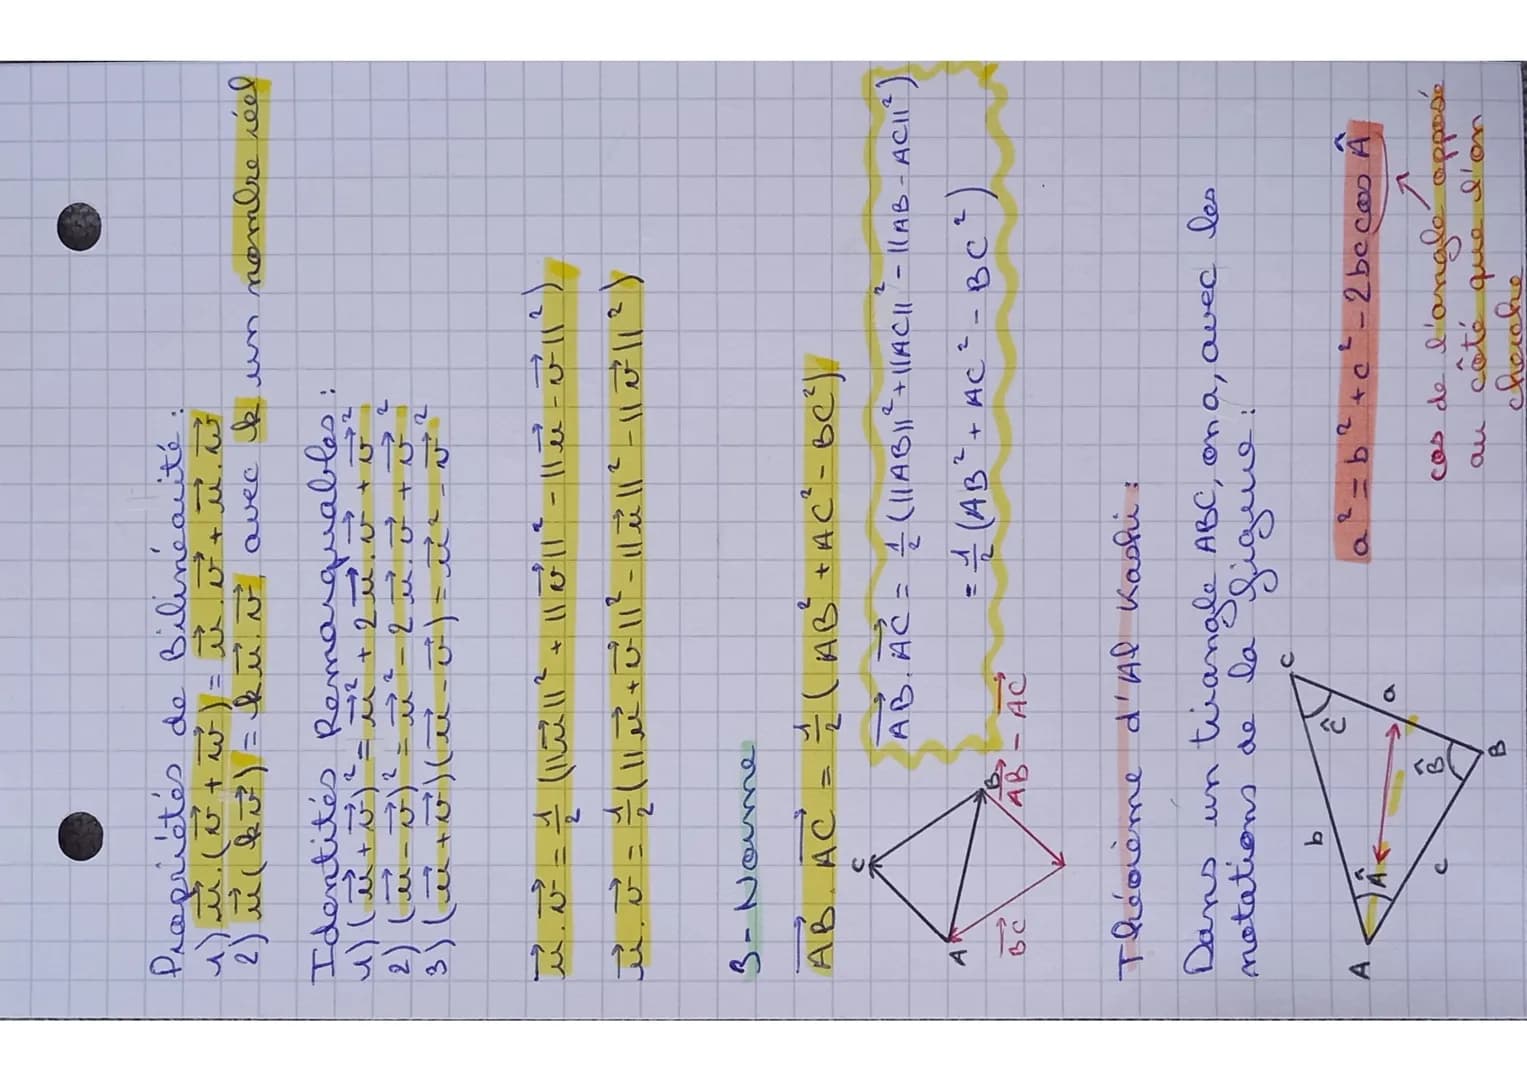 Propriétés de Bilinéarité :
1) u⃗.(v⃗ + w⃗) = u⃗.v⃗ + u⃗.w⃗
2) u⃗(kv⃗) = ku⃗.v⃗, avec k un nombre réel
Identités Remarquables :
1) (u⃗ + v⃗)² = u⃗² + 2u⃗.v⃗ + v⃗²
2) (u⃗ - v⃗)² = u⃗² - 2u⃗.v⃗ + v⃗²
3) (u⃗ + v⃗)(u⃗ - v⃗) = u⃗² - v⃗²
u⃗.v⃗ = 1/2 (||u⃗||² + ||v⃗||² - ||u⃗ - v⃗||²)
u⃗.v⃗ = 1/2 (||u⃗ + v⃗||² - ||u⃗||² - ||v⃗||²)
3 - Norme
AB⃗.AC⃗ = 1/2 (AB² + AC² - BC²)
AB⃗.AC⃗ = 1/2 (||AB||² + ||AC||² - ||AB - AC||²)
= 1/2 (AB² + AC² - BC²)
C
A
B
BC⃗
AB⃗ - AC⃗
Théorème d'Al Kashi :
Dans un triangle ABC, on a, avec les
notations de la figure :
A
B
C
Â
B̂
Ĉ
a
b
c
a² = b² + c² - 2bc cos Â
cos de l'angle opposé
au côté que l'on
cherche